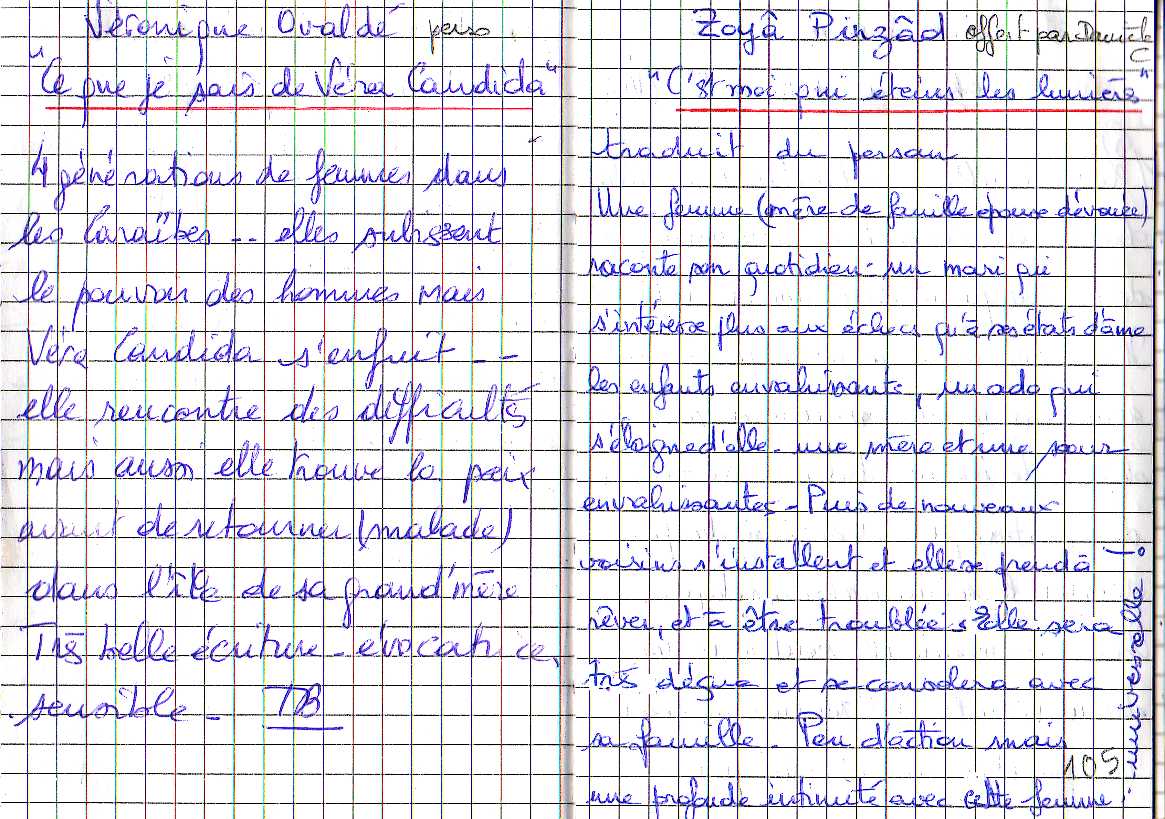 Véronique Ovaldé perso
"Ce que je sais de Véra Candida"
4 générations de femmes dans
les Caraïbes -- elles subissent
le pouvoir des hommes mais
Véra Candida s'enfuit --
elle rencontre des difficultés
mais aussi elle trouve la paix
avant de retourner (malade)
dans l'île de sa grand'mère
Très belle écriture - évocatrice,
sensible - TB
Zoyâ Pirzâd offert par Danièle C
"C'est moi qui éteins les lumières"
traduit du persan
Une femme (mère de famille épouse dévouée)
raconte son quotidien - un mari qui
s'intéresse plus aux échecs qu'à ses états d'âme
les enfants envahissants, un ado qui
s'éloigne d'elle - une mère et une sœur
envahissantes - Puis de nouveaux
voisins s'installent et elle se prend à
rêver, et à être troublée : elle sera
très déçue et se consolera avec
sa famille - Peu d'action mais
une profonde intimité avec cette femme :
universelle !
105